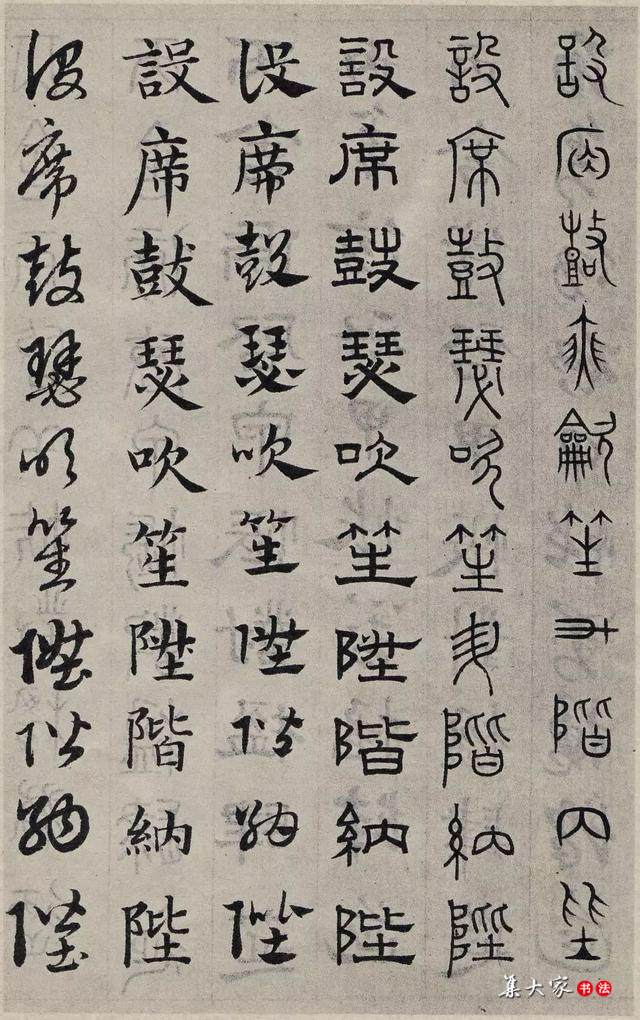 設席鼓瑟吹笙升階內陛
設席鼓瑟吹笙升階納陛
設席鼓瑟吹笙陞階納陛
設席鼓瑟吹笙陞階納陛
設席鼓瑟吹笙陞階納陛
設席鼓瑟吹笙陞階納陛
集大家书法